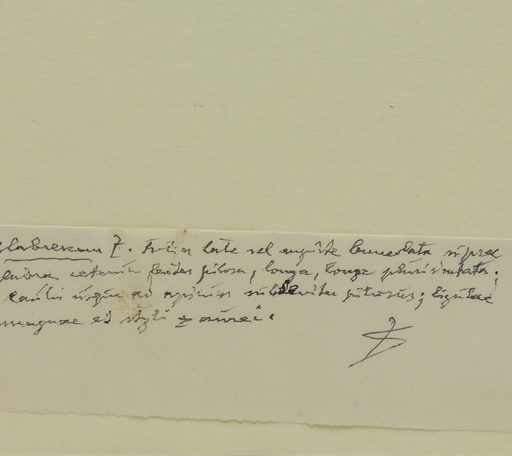 glabrescens Z. Folia late vel anguste lanceolata supra
glabra ceterum laxius pilosa, longa, longe
caulis usque ad apicem sublaxius pilosus; ligulae
magnae et styli ± aurei.